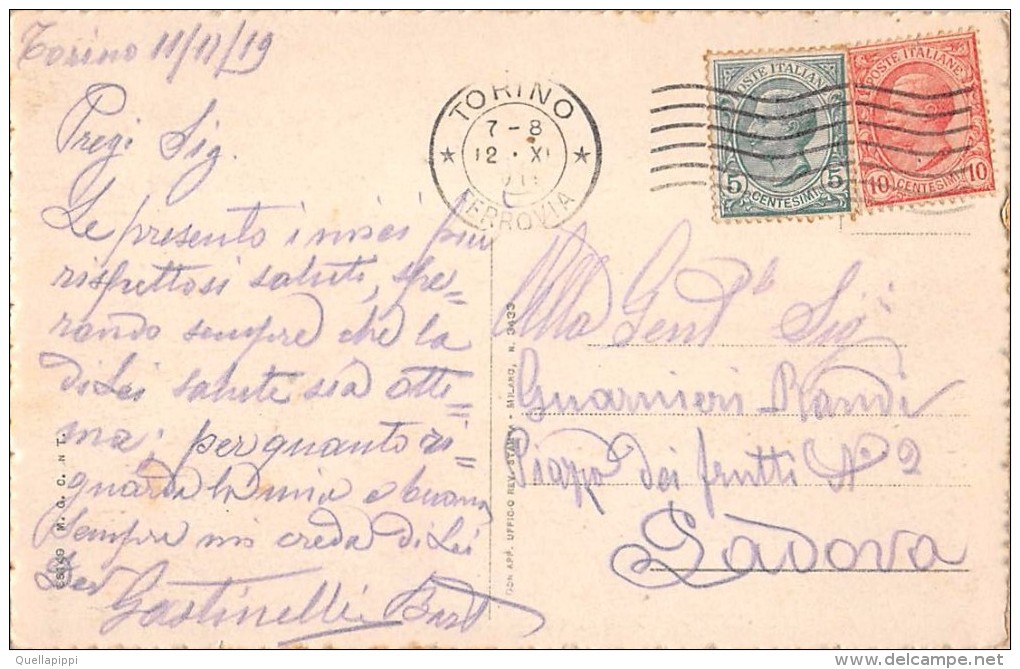 Torino 11/11/19
Pregi Sig.
Le presento i miei più
rispettosi saluti, spe=
rando sempre che la
di Lei salute sia otti=
ma; per quanto ri=
guarda la mia è buona
sempre mi creda di Lei
Gastinelli Bart
TORINO
7-8
12 · XI
FERROVIA
POSTE ITALIANE
5 CENTESIMI 5
POSTE ITALIANE
10 CENTESIMI 10
Alla Gent Sig
Guarnieri Randi
Piazza dei frutti N. 2
Padova
CON APP. UFFICIO REV. STAMPA - MILANO, N. 3433
M. G. C. N T.
Quellapippi